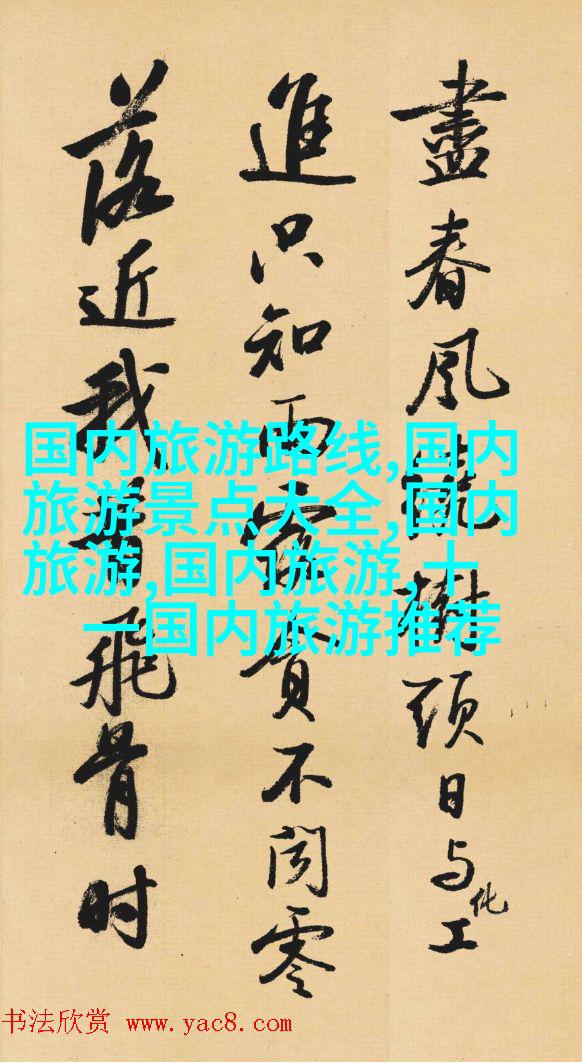 盡春風樹頭日与化工
進只知雨露貪不闻零
落近我有飛骨时
国内旅游路线,国内
旅游景点大全,国内
旅游,国内旅游,十
一国内旅游推荐
书法欣赏 www.yac8.com